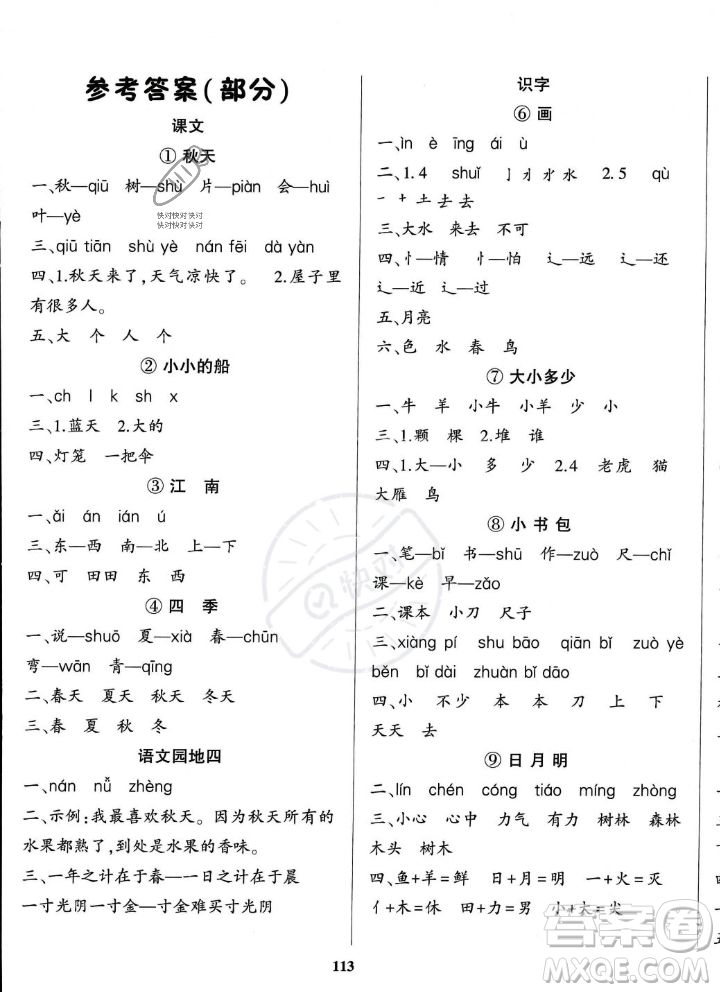 参考答案(部分)
课文
① 秋天
一、秋—qiū 树—shù 片—piàn 会—huì
叶—yè
三、qiū tiān shù yè nán fēi dà yàn
四、1.秋天来了,天气凉快了。 2.屋子里
有很多人。
五、大 个 人 个
② 小小的船
一、ch l k sh x
三、1.蓝天 2.大的
四、灯笼 一把伞
③ 江 南
一、ǎi án ián ú
三、东—西 南—北 上—下
四、可 田田 东 西
④ 四 季
一、说—shuō 夏—xià 春—chūn
弯—wān 青—qīng
二、春天 夏天 秋天 冬天
三、春 夏 秋 冬
语文园地四
一、nán nǚ zhèng
二、示例:我最喜欢秋天。因为秋天所有的
水果都熟了,到处是水果的香味。
三、一年之计在于春—一日之计在于晨
一寸光阴一寸金—寸金难买寸光阴
识字
⑥ 画
一、ìn è īng ái ù
二、1.4 shuǐ 亅 刁 水 水 2.5 qù
一 十 土 去 去
三、大水 来去 不可
四、忄—情 忄—怕 辶—远 辶—还
辶—近 辶—过
五、月亮
六、色 水 春 鸟
⑦ 大小多少
一、牛 羊 小牛 小羊 少 小
三、1.颗 棵 2.堆 谁
四、1.大—小 多—少 2.4 老虎 猫
大雁 鸟
⑧ 小 书 包
一、笔—bǐ 书—shū 作—zuò 尺—chǐ
课—kè 早—zǎo
二、课本 小刀 尺子
三、xiàng pí shū bāo qiān bǐ zuò yè
běn bǐ dài zhuàn bǐ dāo
四、小 不少 本 本 刀 上 下
天天 去
⑨ 日 月 明
二、lín chén cóng tiáo míng zhòng
三、小心 心中 力气 有力 树林 森林
木头 树木
四、鱼+羊=鲜 日+月=明 一+火=灭
亻+木=休 田+力=男 小+大=尖
113
快对 快对 快对
快对 快对 快对
快对
答案圈
MXQE.COM